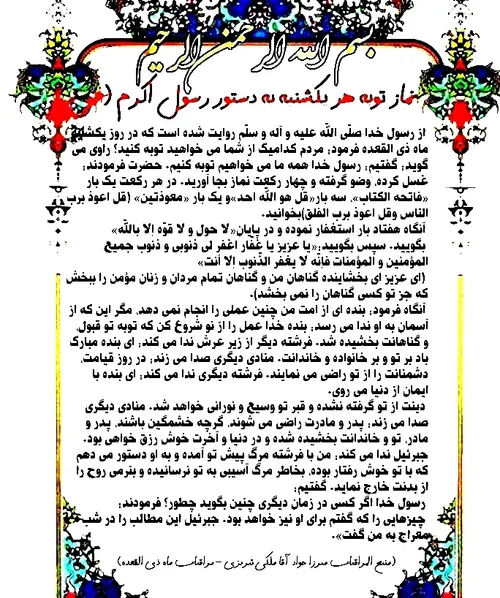 بسم الله الرحمن الرحیم
نماز توبه هر یکشنبه به دستور رسول اکرم (ص)
از رسول خدا صلّی الله علیه و آله و سلّم روایت شده است که در روز یکشنبه
ماه ذی القعده فرمود: مردم کدامیک از شما می خواهید توبه کنید؟ راوی می
گوید: گفتیم: رسول خدا همه ما می خواهیم توبه کنیم. حضرت فرمودند:
غسل کرده، وضو گرفته و چهار رکعت نماز بجا آورید. در هر رکعت یک بار
«فاتحه الکتاب»، سه بار«قل هو الله احد»و یک بار «معوذتین» (قل اعوذ برب
الناس وقل اعوذ برب الفلق)بخوانید.
آنگاه هفتاد بار استغفار نموده و در پایان«لا حول و لا قوّه إلا بالله»
بگویید. سپس بگویید:«یا عزیز یا غفّار اغفر لی ذنوبی و ذنوب جمیع
المؤمنین و المؤمنات فإنّه لا یغفر الذّنوب إلا أنت»
(ای عزیز ای بخشاینده گناهان من و گناهان تمام مردان و زنان مؤمن را ببخش
که جز تو کسی گناهان را نمی بخشد).
آنگاه فرمود: بنده ای از امت من چنین عملی را انجام نمی دهد، مگر این که از
آسمان به او ندا می رسد: بنده خدا عمل را از نو شروع کن که توبه تو قبول،
و گناهانت بخشیده شد. فرشته دیگر از زیر عرش ندا می کند: ای بنده مبارک
باد بر تو و بر خانواده و خاندانت. منادی دیگری صدا می زند: در روز قیامت،
دشمنانت را از تو راضی می نمایند. فرشته دیگری ندا می کند: ای بنده با
ایمان از دنیا می روی.
دینت از تو گرفته نشده و قبر تو وسیع و نورانی خواهد شد. منادی دیگری
صدا می زند: پدر و مادرت راضی می شوند، گرچه خشمگین باشند. پدر و
مادر، تو و خاندانت بخشیده شده و در دنیا و آخرت خوش رزق خواهی بود.
جبرئیل ندا می کند: من با فرشته مرگ پیش تو آمده و به او دستور می دهم
که با تو خوش رفتار بوده، بخاطر مرگ آسیبی به تو نرسانیده و بنرمی روح را
از بدنت خارج نماید. گفتیم:
رسول خدا اگر کسی در زمان دیگری چنین بگوید چطور؟ فرمودند:
چیزهایی را که گفتم برای او نیز خواهد بود. جبرئیل این مطالب را در شب
معراج به من گفت».
(منبع المراقبات میرزا جواد آقا ملکی تبریزی – مراقبات ماه ذی القعده)